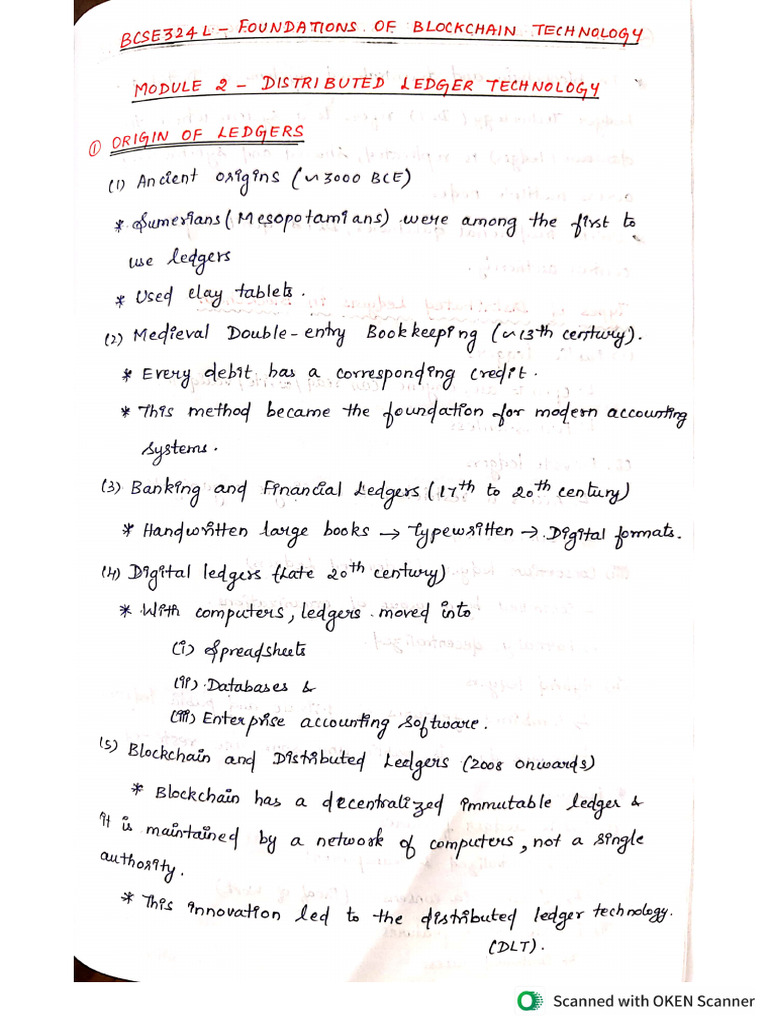 BCSE324L - FOUNDATIONS OF BLOCKCHAIN TECHNOLOGY
MODULE 2 - DISTRIBUTED LEDGER TECHNOLOGY
① ORIGIN OF LEDGERS
(1) Ancient origins (~3000 BCE)
* Sumerians (Mesopotamians) were among the first to
use ledgers
* Used clay tablets.
(2) Medieval Double-entry Bookkeeping (~13th century).
* Every debit has a corresponding credit.
* This method became the foundation for modern accounting
systems.
(3) Banking and Financial Ledgers (17th to 20th century)
* Handwritten large books → Typewritten → Digital formats.
(4) Digital ledgers (Late 20th century)
* With computers, ledgers moved into
(i) Spreadsheets
(ii) Databases &
(iii) Enterprise accounting software.
(5) Blockchain and Distributed Ledgers (2008 onwards)
* Blockchain has a decentralized immutable ledger &
it is maintained by a network of computers, not a single
authority.
* This innovation led to the distributed ledger technology.
(DLT).
Scanned with OKEN Scanner